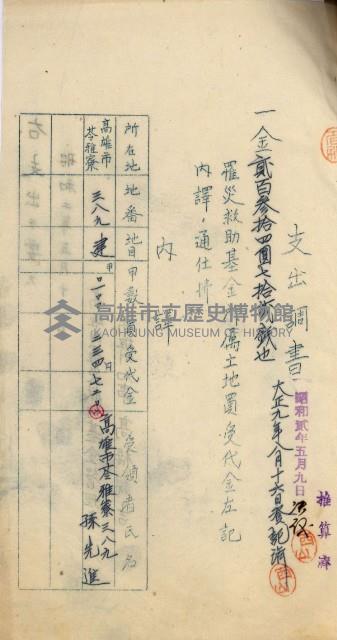 支出調書
昭和貳年五月九日
推算濟
大正九年八月十六日登記濟
一金貳百參拾四圓七拾貳錢也
罹災救助基金ニ屬土地買受代金左記
內譯ノ通仕拂
內譯
所在地 地番 地目 甲數 買受代金 受領者氏名
高雄市苓雅寮 三八九 建 二三四七二〇 高雄市苓雅寮三八九
孫先進
高雄市立歷史博物館
KAOHSIUNG MUSEUM OF HISTORY